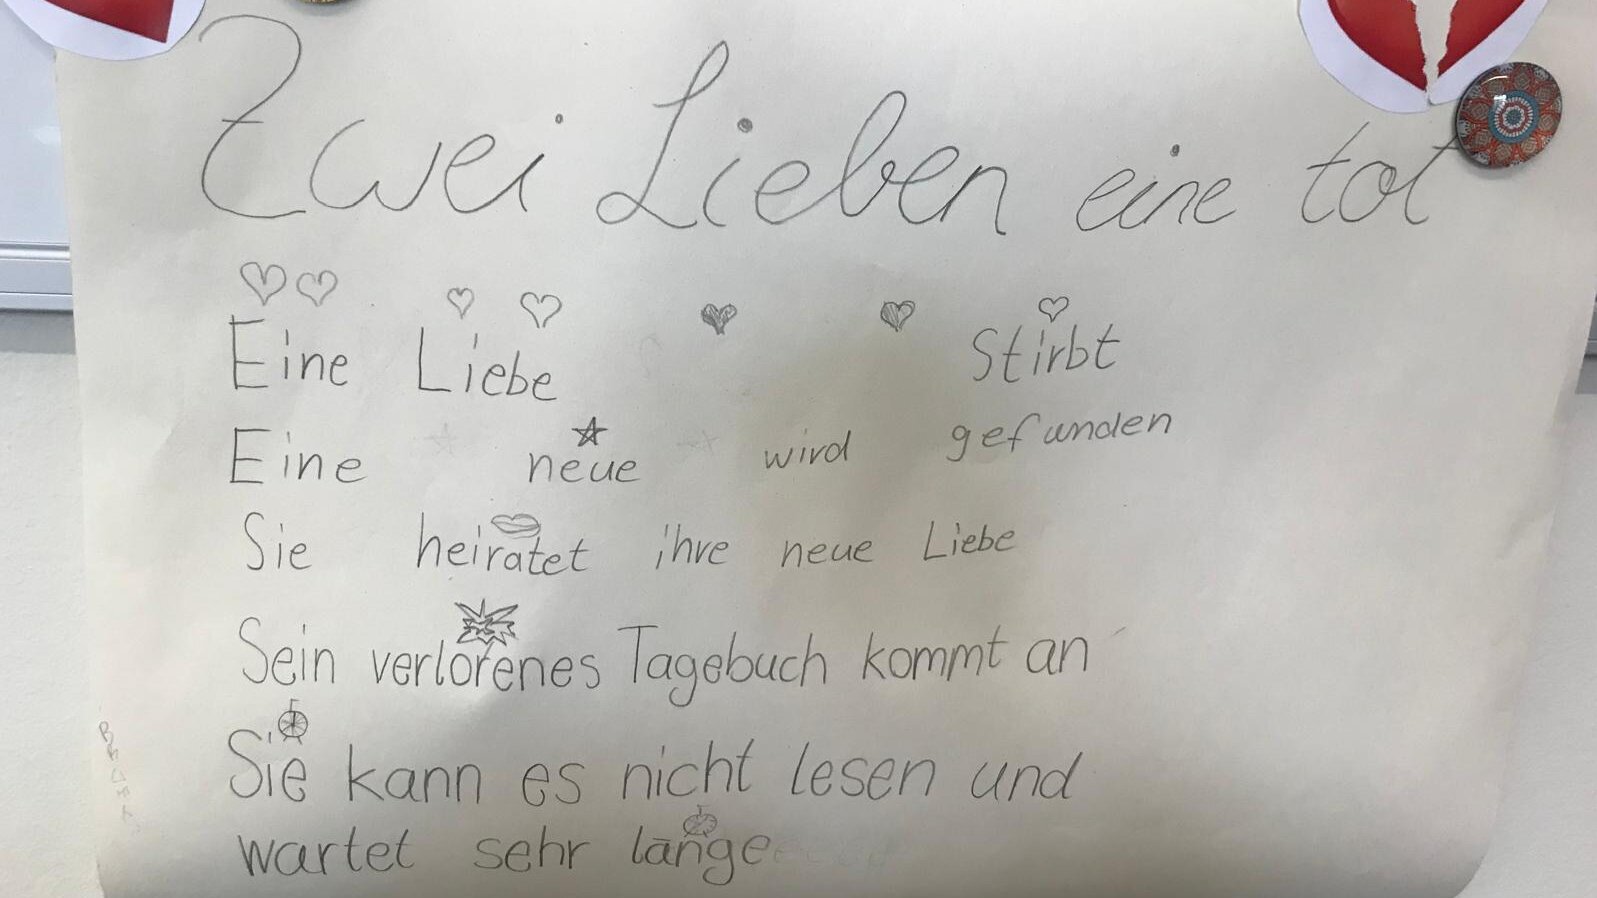 Zwei Lieben eine tot
Eine Liebe Stirbt
Eine neue wird gefunden
Sie heiratet ihre neue Liebe
Sein verlorenes Tagebuch kommt an
Sie kann es nicht lesen und
wartet sehr lange